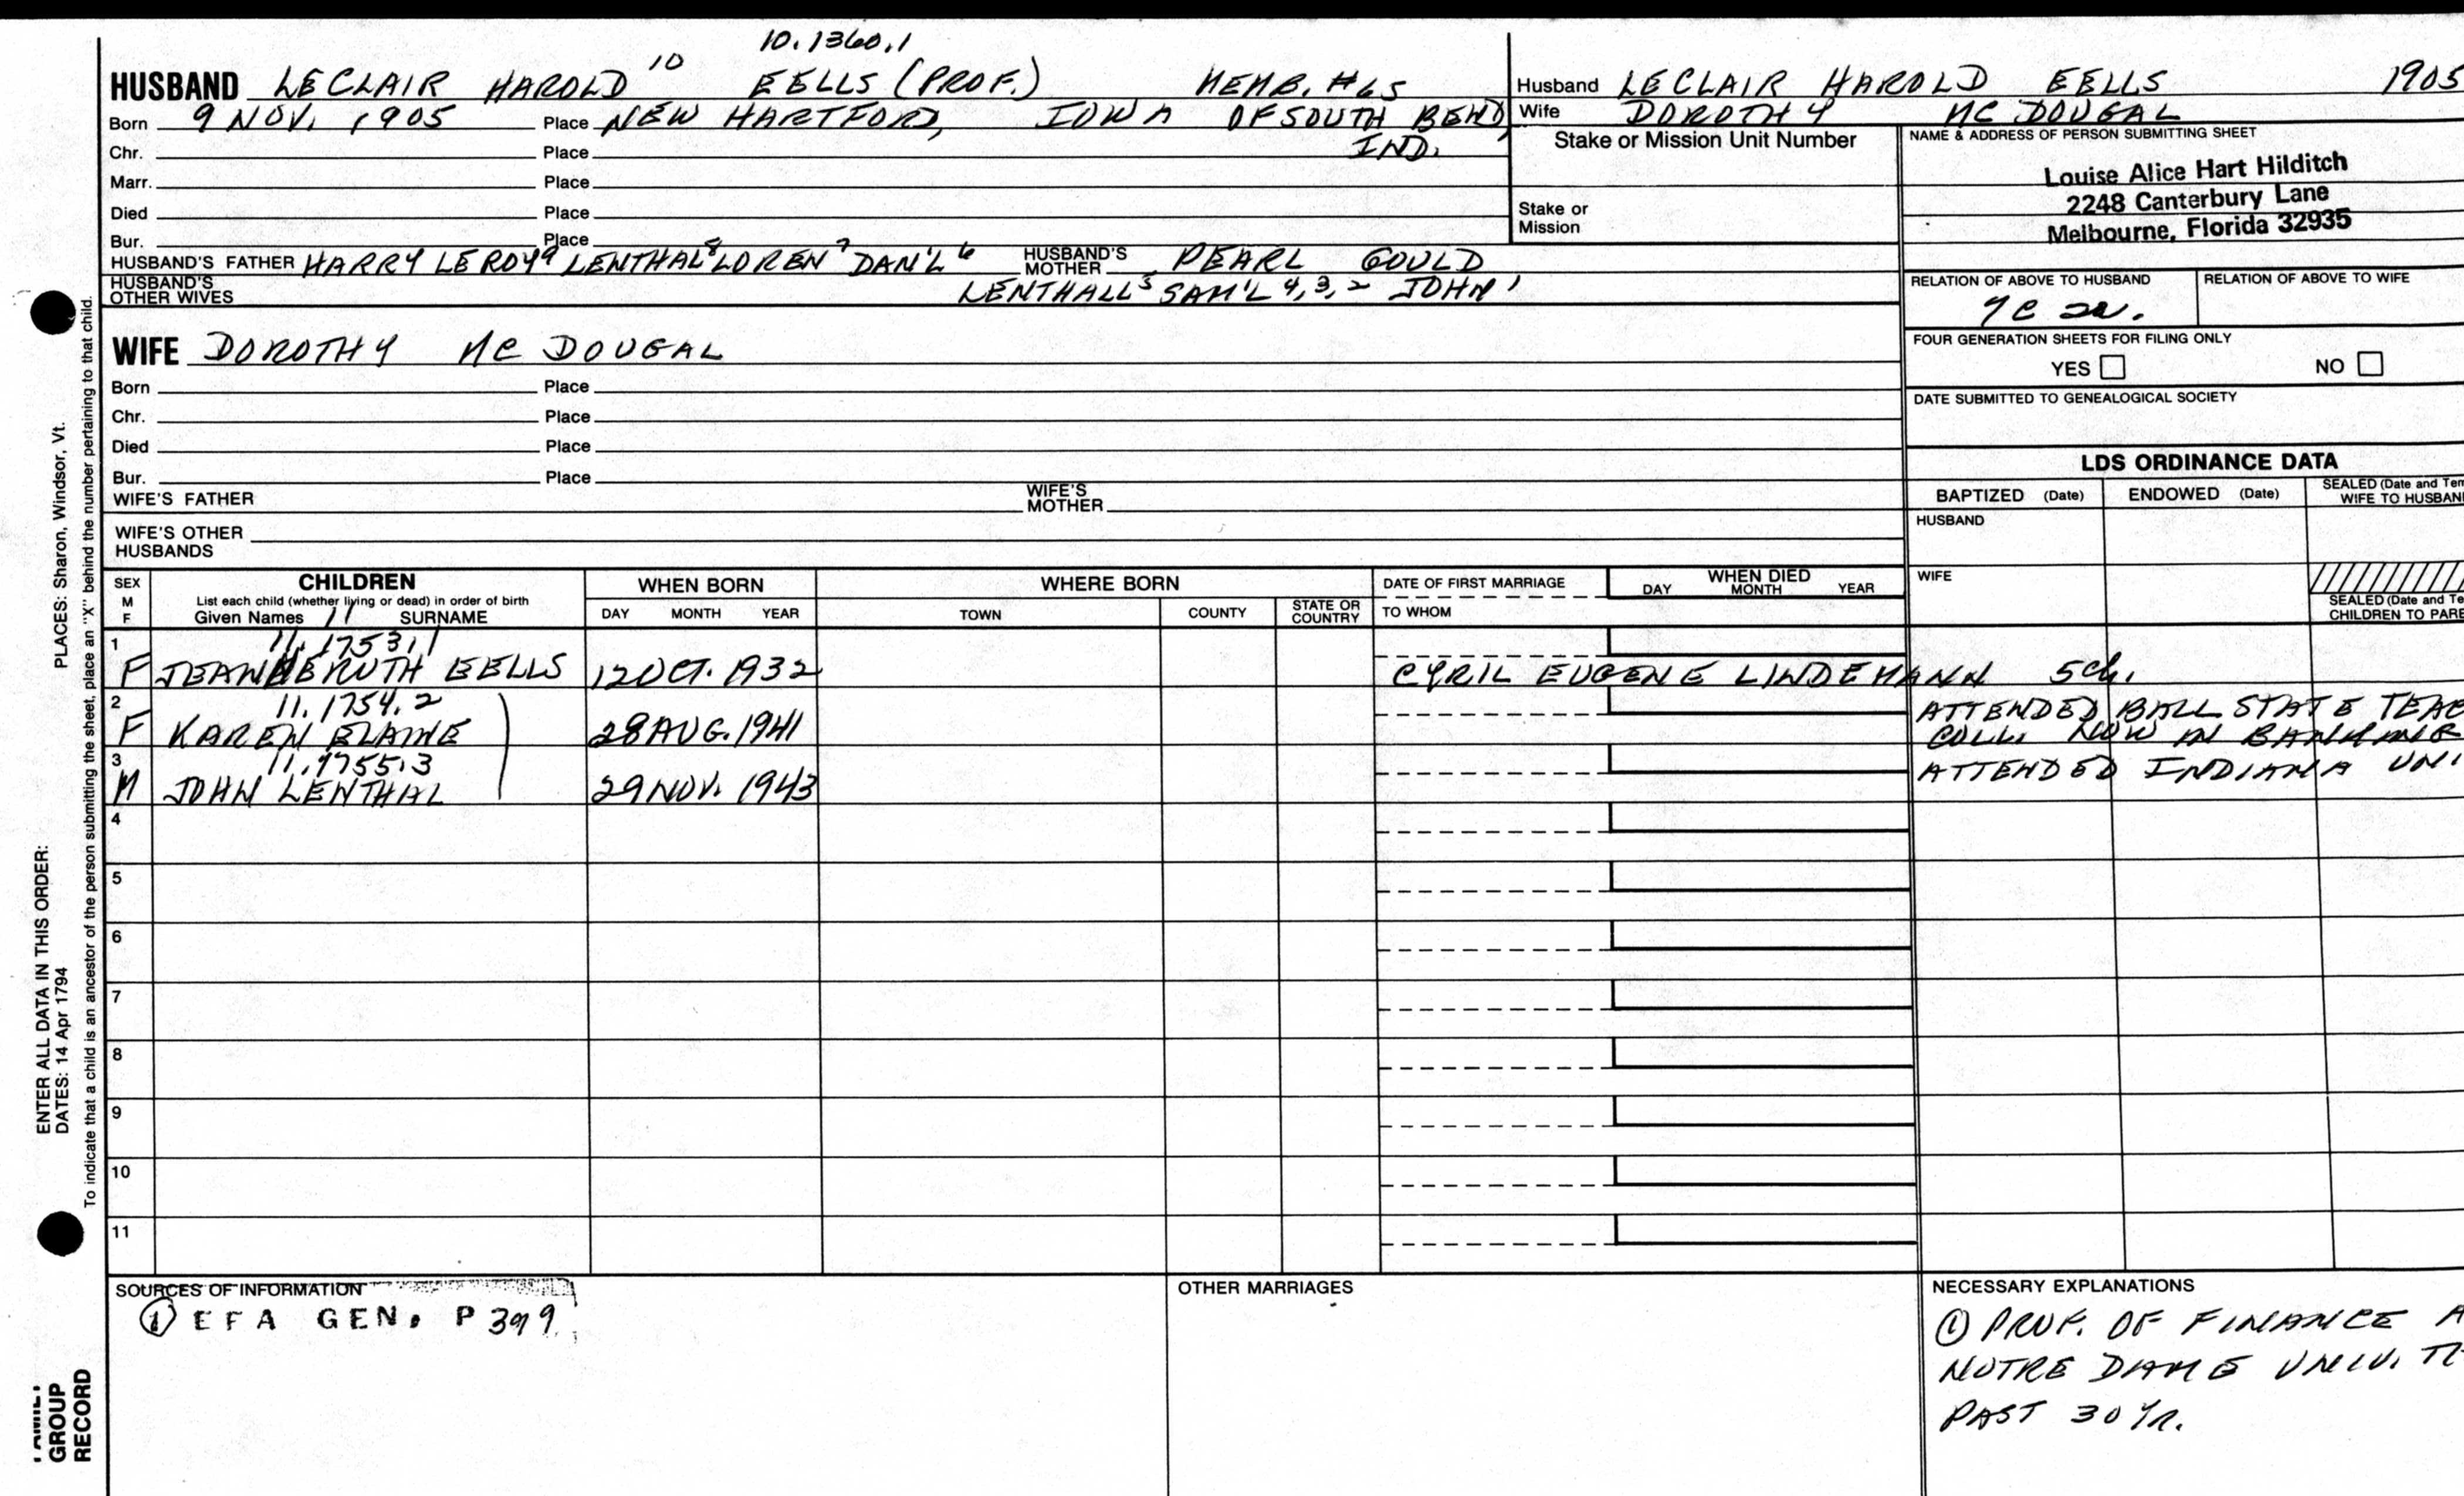 10.1360.1
HUSBAND LECLAIR HAROLD 10 EELLS (PROF.) MEMB. #65
Born 9 NOV. 1905 Place NEW HARTFORD, IOWA OF SOUTH BEND,
Chr. Place IND.
Marr. Place
Died Place
Bur. Place
HUSBAND'S FATHER HARRY LEROY 9 LENTHAL 8 LOREN 7 DAN'L 6 HUSBAND'S MOTHER PEARL GOULD
HUSBAND'S OTHER WIVES LENTHALL 5 SAM'L 4, 3, 2 JOHN 1
Husband LECLAIR HAROLD EELLS 1905
Wife DOROTHY MC DOUGAL
Stake or Mission Unit Number
Stake or
Mission
NAME & ADDRESS OF PERSON SUBMITTING SHEET
Louise Alice Hart Hilditch
2248 Canterbury Lane
Melbourne, Florida 32935
RELATION OF ABOVE TO HUSBAND RELATION OF ABOVE TO WIFE
7C
FOUR GENERATION SHEETS FOR FILING ONLY
YES NO
DATE SUBMITTED TO GENEALOGICAL SOCIETY
WIFE DOROTHY MC DOUGAL
Born Place
Chr. Place
Died Place
Bur. Place
WIFE'S FATHER WIFE'S MOTHER
WIFE'S OTHER
HUSBANDS
LDS ORDINANCE DATA
BAPTIZED (Date) ENDOWED (Date) SEALED (Date and Tem
WIFE TO HUSBAN
HUSBAND
WIFE
SEALED (Date and Te
CHILDREN TO PARE
SEX
M
F
CHILDREN
List each child (whether living or dead) in order of birth
Given Names 11 SURNAME
WHEN BORN
DAY MONTH YEAR
WHERE BORN
TOWN COUNTY STATE OR COUNTRY
DATE OF FIRST MARRIAGE
TO WHOM
WHEN DIED
DAY MONTH YEAR
1 11.1753.1
F JEANNE RUTH EELLS 12 OCT. 1932 CYRIL EUGENE LINDEMANN 5ch.
2 11.1754.2
F KAREN ELAINE 28 AUG. 1941 ATTENDED BALL STATE TEAC
COLL. NOW IN BANKING
3 11.1755.3
M JOHN LENTHAL 29 NOV. 1943 ATTENDED INDIANA UNI
4
5
6
7
8
9
10
11
SOURCES OF INFORMATION
① EFA GEN. P 399
OTHER MARRIAGES
NECESSARY EXPLANATIONS
① PROF. OF FINANCE A
NOTRE DAME UNIV. T
PAST 30 YR.
PLACES: Sharon, Windsor, Vt.
ENTER ALL DATA IN THIS ORDER:
DATES: 14 Apr 1794
To indicate that a child is an ancestor of the person submitting the sheet, place an "X" behind the number pertaining to that child.
FAMILY
GROUP
RECORD